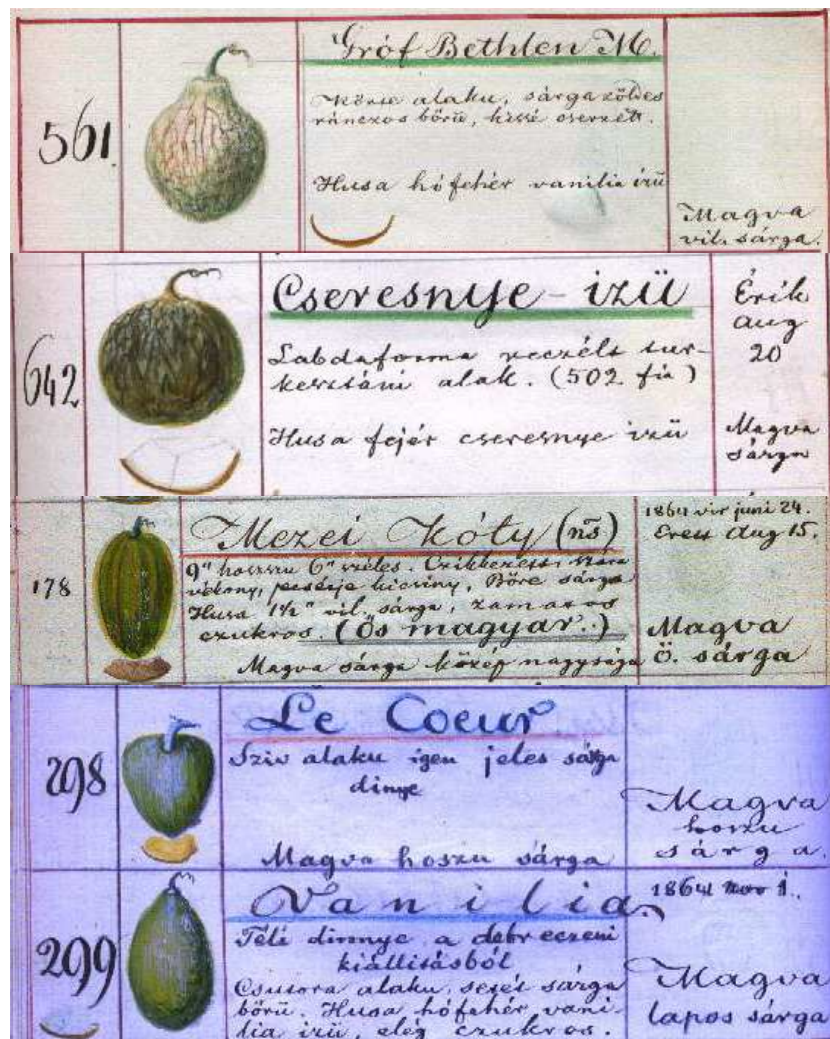 561.
Gróf Bethlen M.
Körte alaku, sárga zöldes
ránczos bőrü, kissé cserzett.
Husa hófehér vanilia izü
Magva
vil. sárga.
642
Cseresnye-izü
Labdaforma reczélt tur-
kesztáni alak. (502 fia)
Husa fejér cseresnye izü
Érik
aug
20
Magva
sárga
178
Mezei Kóty (ns)
9" hosszu 6" széles. Czikkezett, szára
vékony, pecsétje kicsiny, Bőre sárga
Husa 1½" vil. sárga, zamatos
czukros. (Ős magyar..)
Magva sárga közép nagyságu
1864 vir juni 24.
Érett Aug 15.
Magva
ö. sárga
298
Le Coeur
Sziv alaku igen jeles sárga
dinye
Magva hoszu sárga
Magva
hoszu
sárga.
299
Vanilia
Téli dinnye a debreczeni
kiállitásból
Csutora alaku, setét sárga
bőrü. Husa hófehér vani-
lia izü, elég czukros.
1864 nov 1.
Magva
lapos sárga